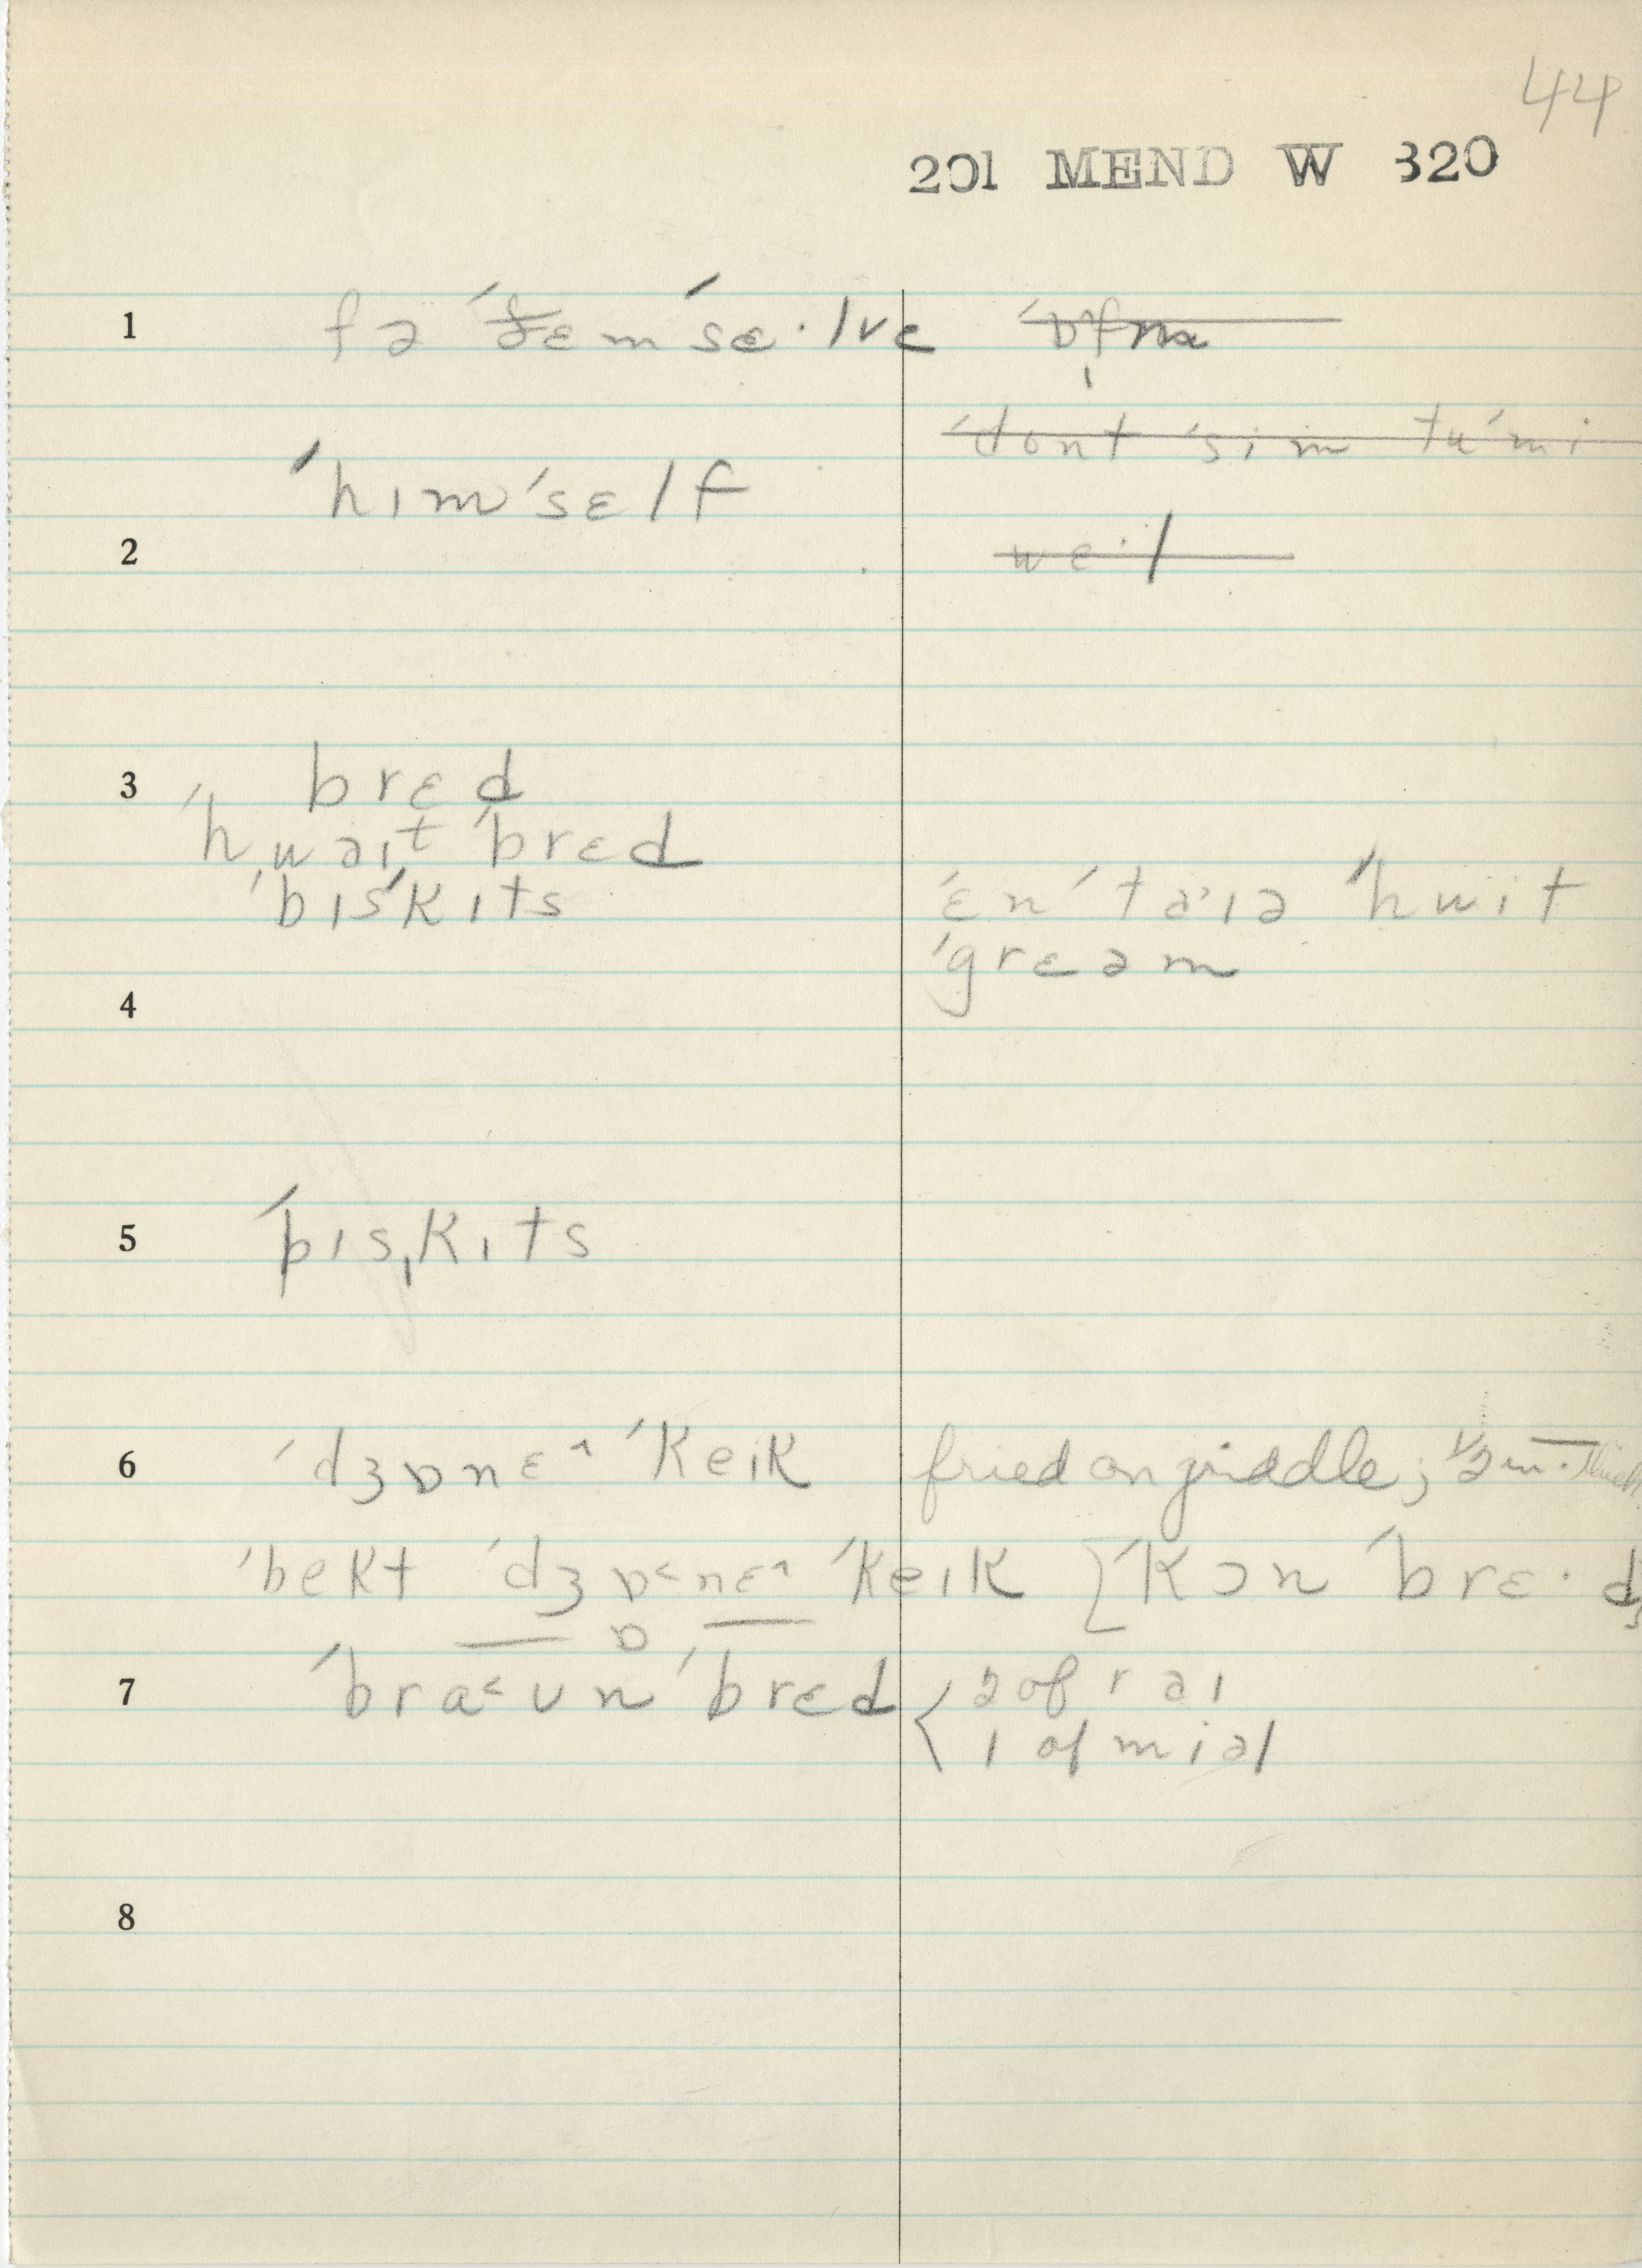 44
201 MEND W 320
1 fə ˈðɛmˈsɛ·lvɛ
ˈdont ˈsim tuˈmi
ˈhɪmˈsɛlf
2 wɛ·l
3 brɛd
ˈhwəɪt ˈbrɛd
ˈbɪsˈkɪts ˈɛnˈtəˑɪə ˈhwit
ˈgrɛəm
4
5 ˈbɪsˌkɪts
6 ˈdʒɒnɛ^ ˈkeɪk fried on griddle; 1/2 in. thick
ˈbekt ˈdʒɒ<nɛ^ ˈkeɪk [ˈkɔn ˈbrɛ·d;
ɒ
7 ˈbra<ʊn ˈbrɛd < 2 of rəɪ
1 of miəl
8